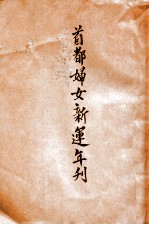 首都婦女新運年刊